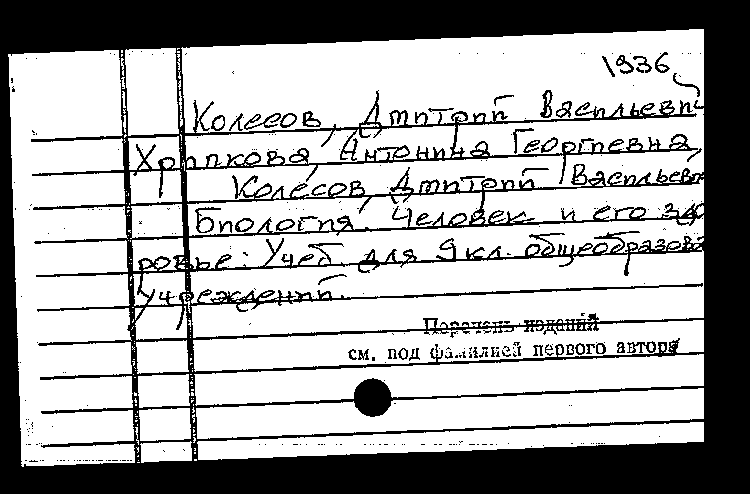 1936
Колесов, Дмитрий Васильеви
Хрипкова, Антонина Георгиевна,
Колесов, Дмитрий Васильеви
Биология. Человек и его здо
ровье: Учеб. для 9 кл. общеобразова
учреждений.
Перечень изданий
см. под фамилией первого автора